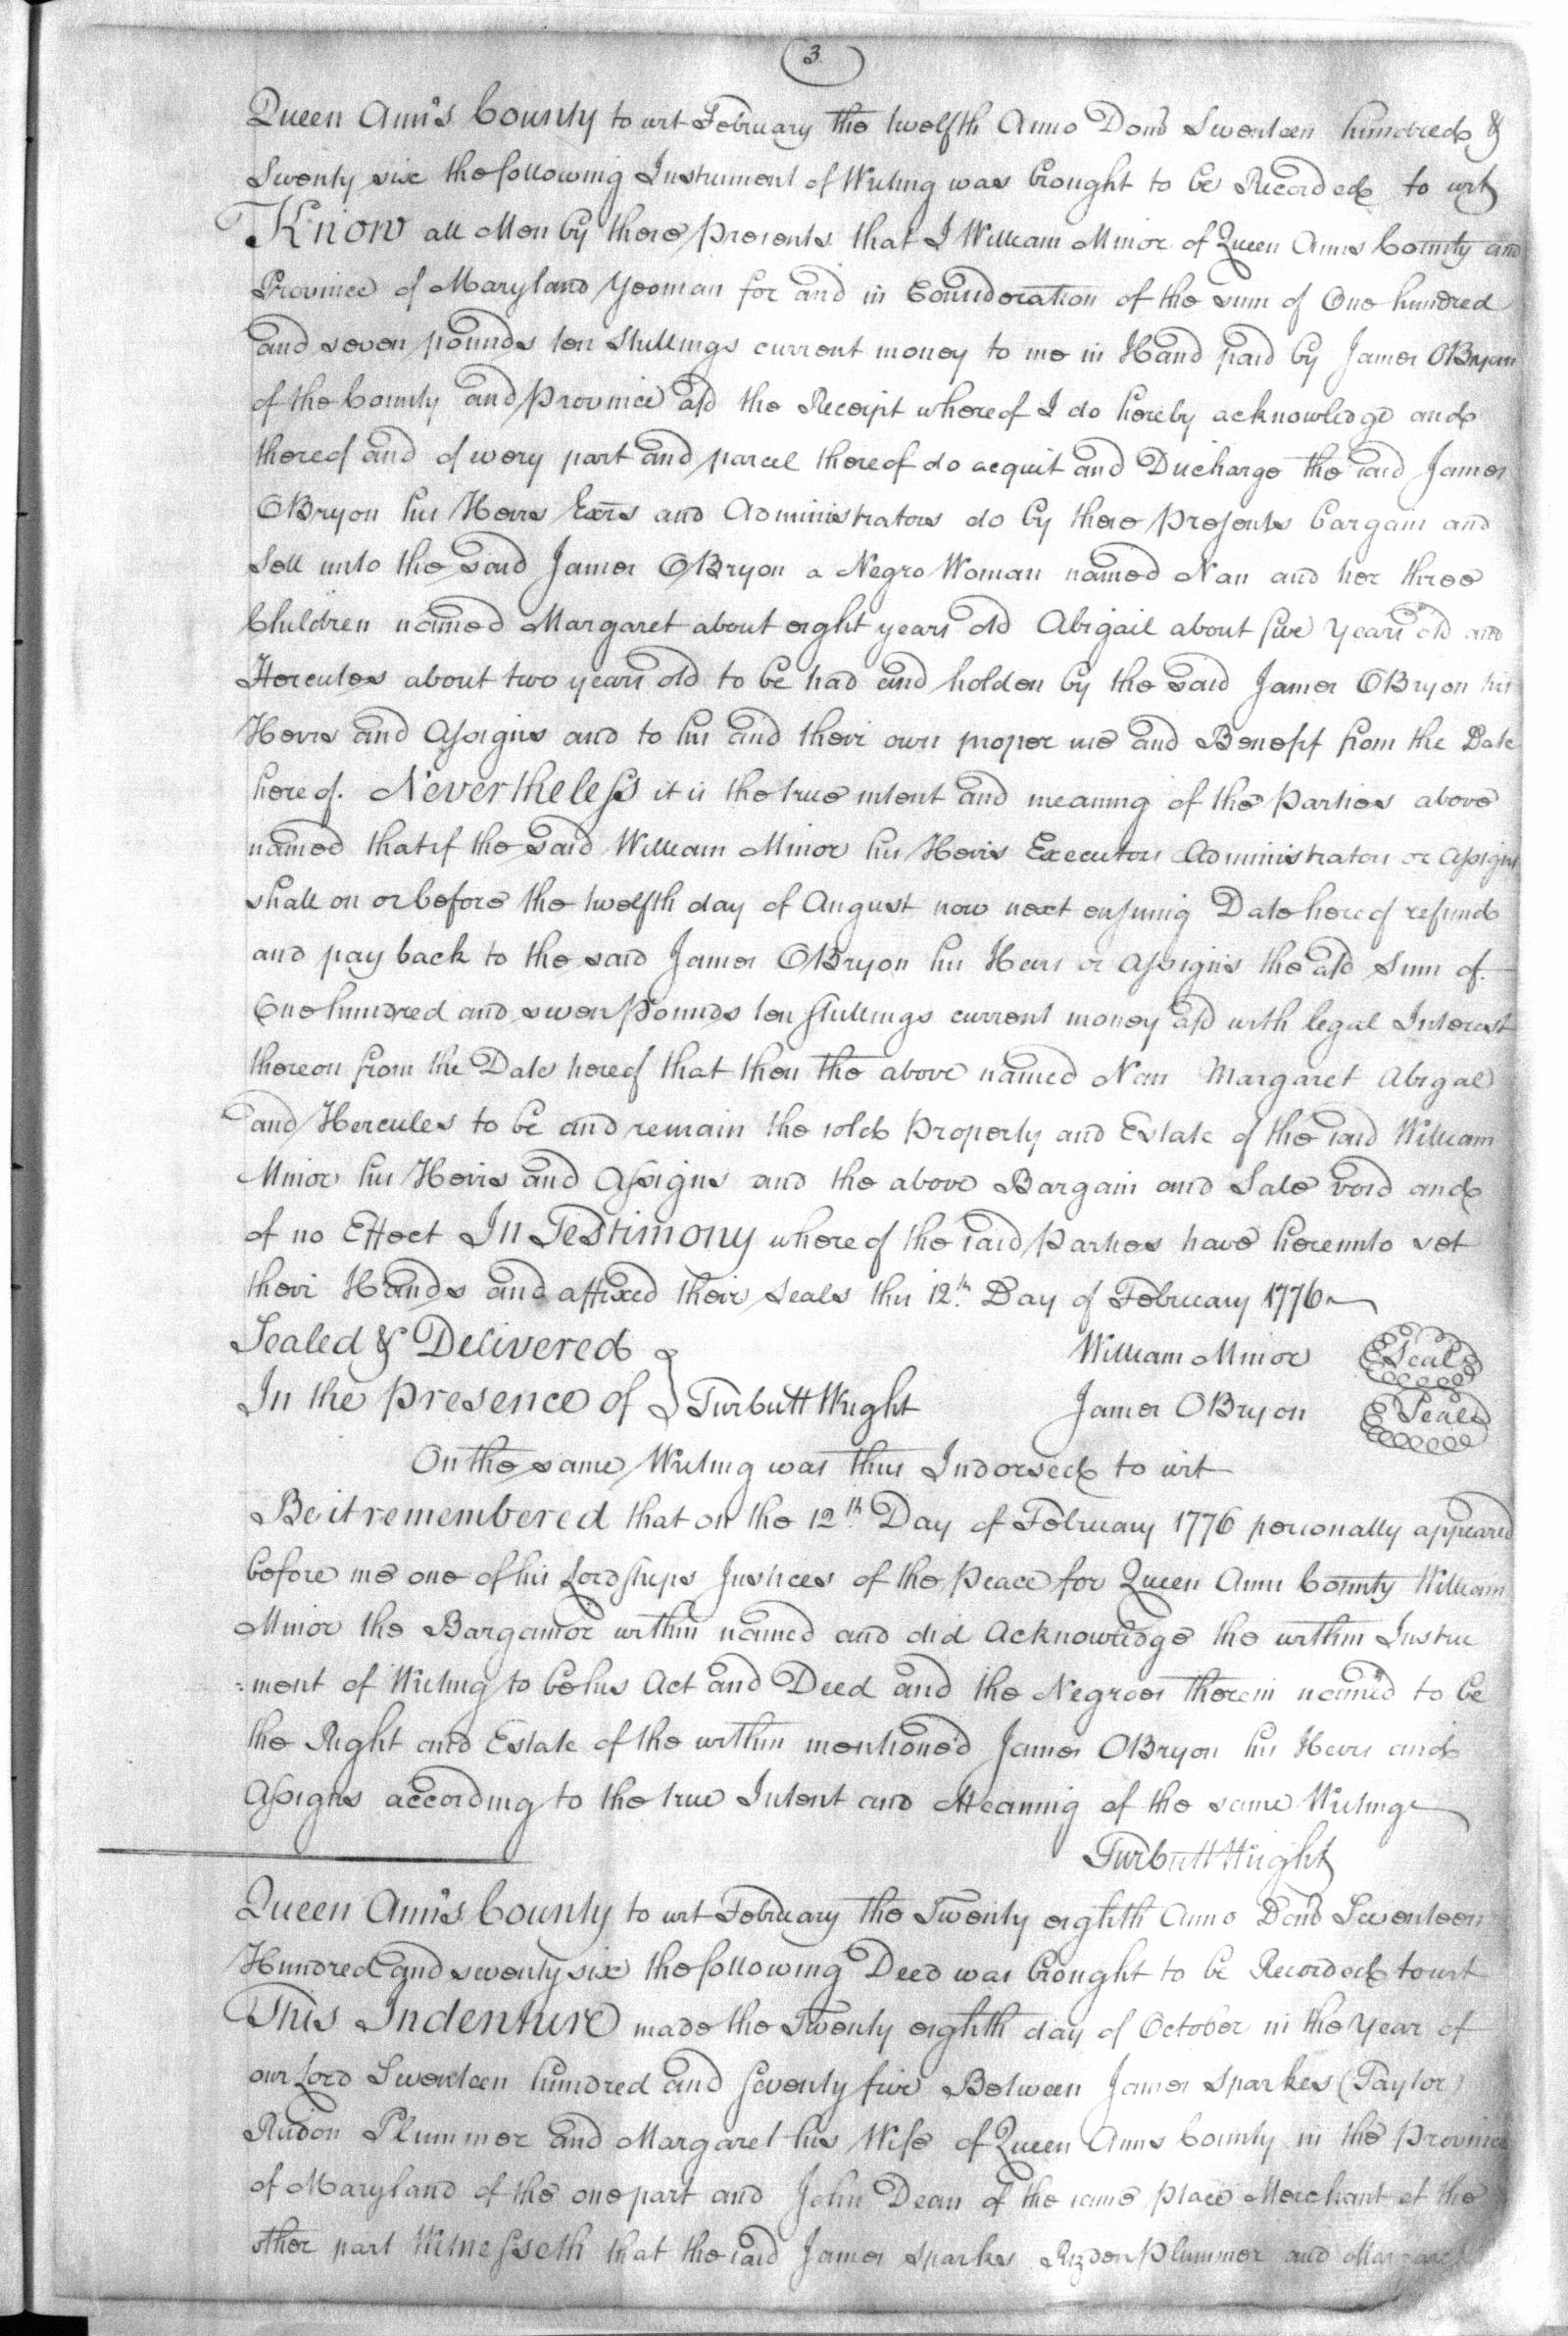 3
Queen Ann's County to wit February the twelfth Anno Domo Seventeen hundred &
Seventy six the following Instrument of Writing was brought to be Recorded to wit
Know all Men by these presents that I William Minor of Queen Anns County and
Province of Maryland Yeoman for and in Consideration of the sum of One hundred
and seven pounds ten Shillings current money to me in Hand paid by James OBryon
of the County and Province afd the Receipt whereof I do hereby acknowledge and
thereof and of every part and parcel thereof do acquit and Discharge the said James
OBryon his Heirs Exrs and Administrators do by these Presents bargain and
Sell unto the said James OBryon a Negro Woman named Nan and her three
Children named Margaret about eight years old Abigail about five Years old and
Hercules about two years old to be had and holden by the said James OBryon his
Heirs and Assigns and to his and their own proper use and Benefit from the Date
hereof. Nevertheless it is the true intent and meaning of the Parties above
named that if the said William Minor his Heirs Executors Administrators or Assigns
shall on or before the twelfth day of August now next ensuing Date hereof refund
and pay back to the said James OBryon his Heirs or Assigns the afd Sum of
One hundred and seven Pounds ten Shillings current money afd with legal Interest
thereon from the Date hereof that then the above named Nan Margaret Abigal
and Hercules to be and remain the sole Property and Estate of the said William
Minor his Heirs and Assigns and the above Bargain and Sale void and
of no Effect In Testimony whereof the said Parties have hereunto set
their Hands and affixed their Seals this 12.th Day of February 1776
Sealed & Delivered William Minor Seal
In the presence of } Turbutt Wright James OBryon Seal
On the same Writing was thus Indorsed to wit
Be it remembered that on the 12.th Day of February 1776 personally appeared
before me one of his Lordships Justices of the Peace for Queen Anns County William
Minor the Bargainor within named and did Acknowledge the within Instru
:ment of Writing to be his Act and Deed and the Negroes therein named to be
the Right and Estate of the within mentioned James OBryon his Heirs and
Assigns according to the true Intent and Meaning of the same Writing
Turbutt Wright
Queen Ann's County to wit February the Twenty eighth Anno Domo Seventeen
Hundred and seventy six the following Deed was brought to be Recorded to wit
This Indenture made the Twenty eighth day of October in the Year of
our Lord Seventeen hundred and seventy five Between James Sparkes (Taylor)
Risdon Plummer and Margaret his Wife of Queen Anns County in the Province
of Maryland of the one part and John Dean of the same place Merchant of the
other part Witnesseth that the said James Sparkes Rizdon Plummer and Margaret